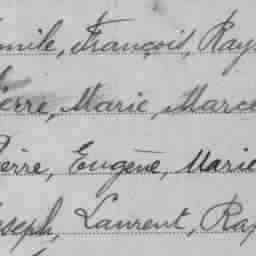 Emile, François, Ray
Pierre, Marie, Marce
Pierre, Eugène, Marie
Joseph, Laurent, Ra